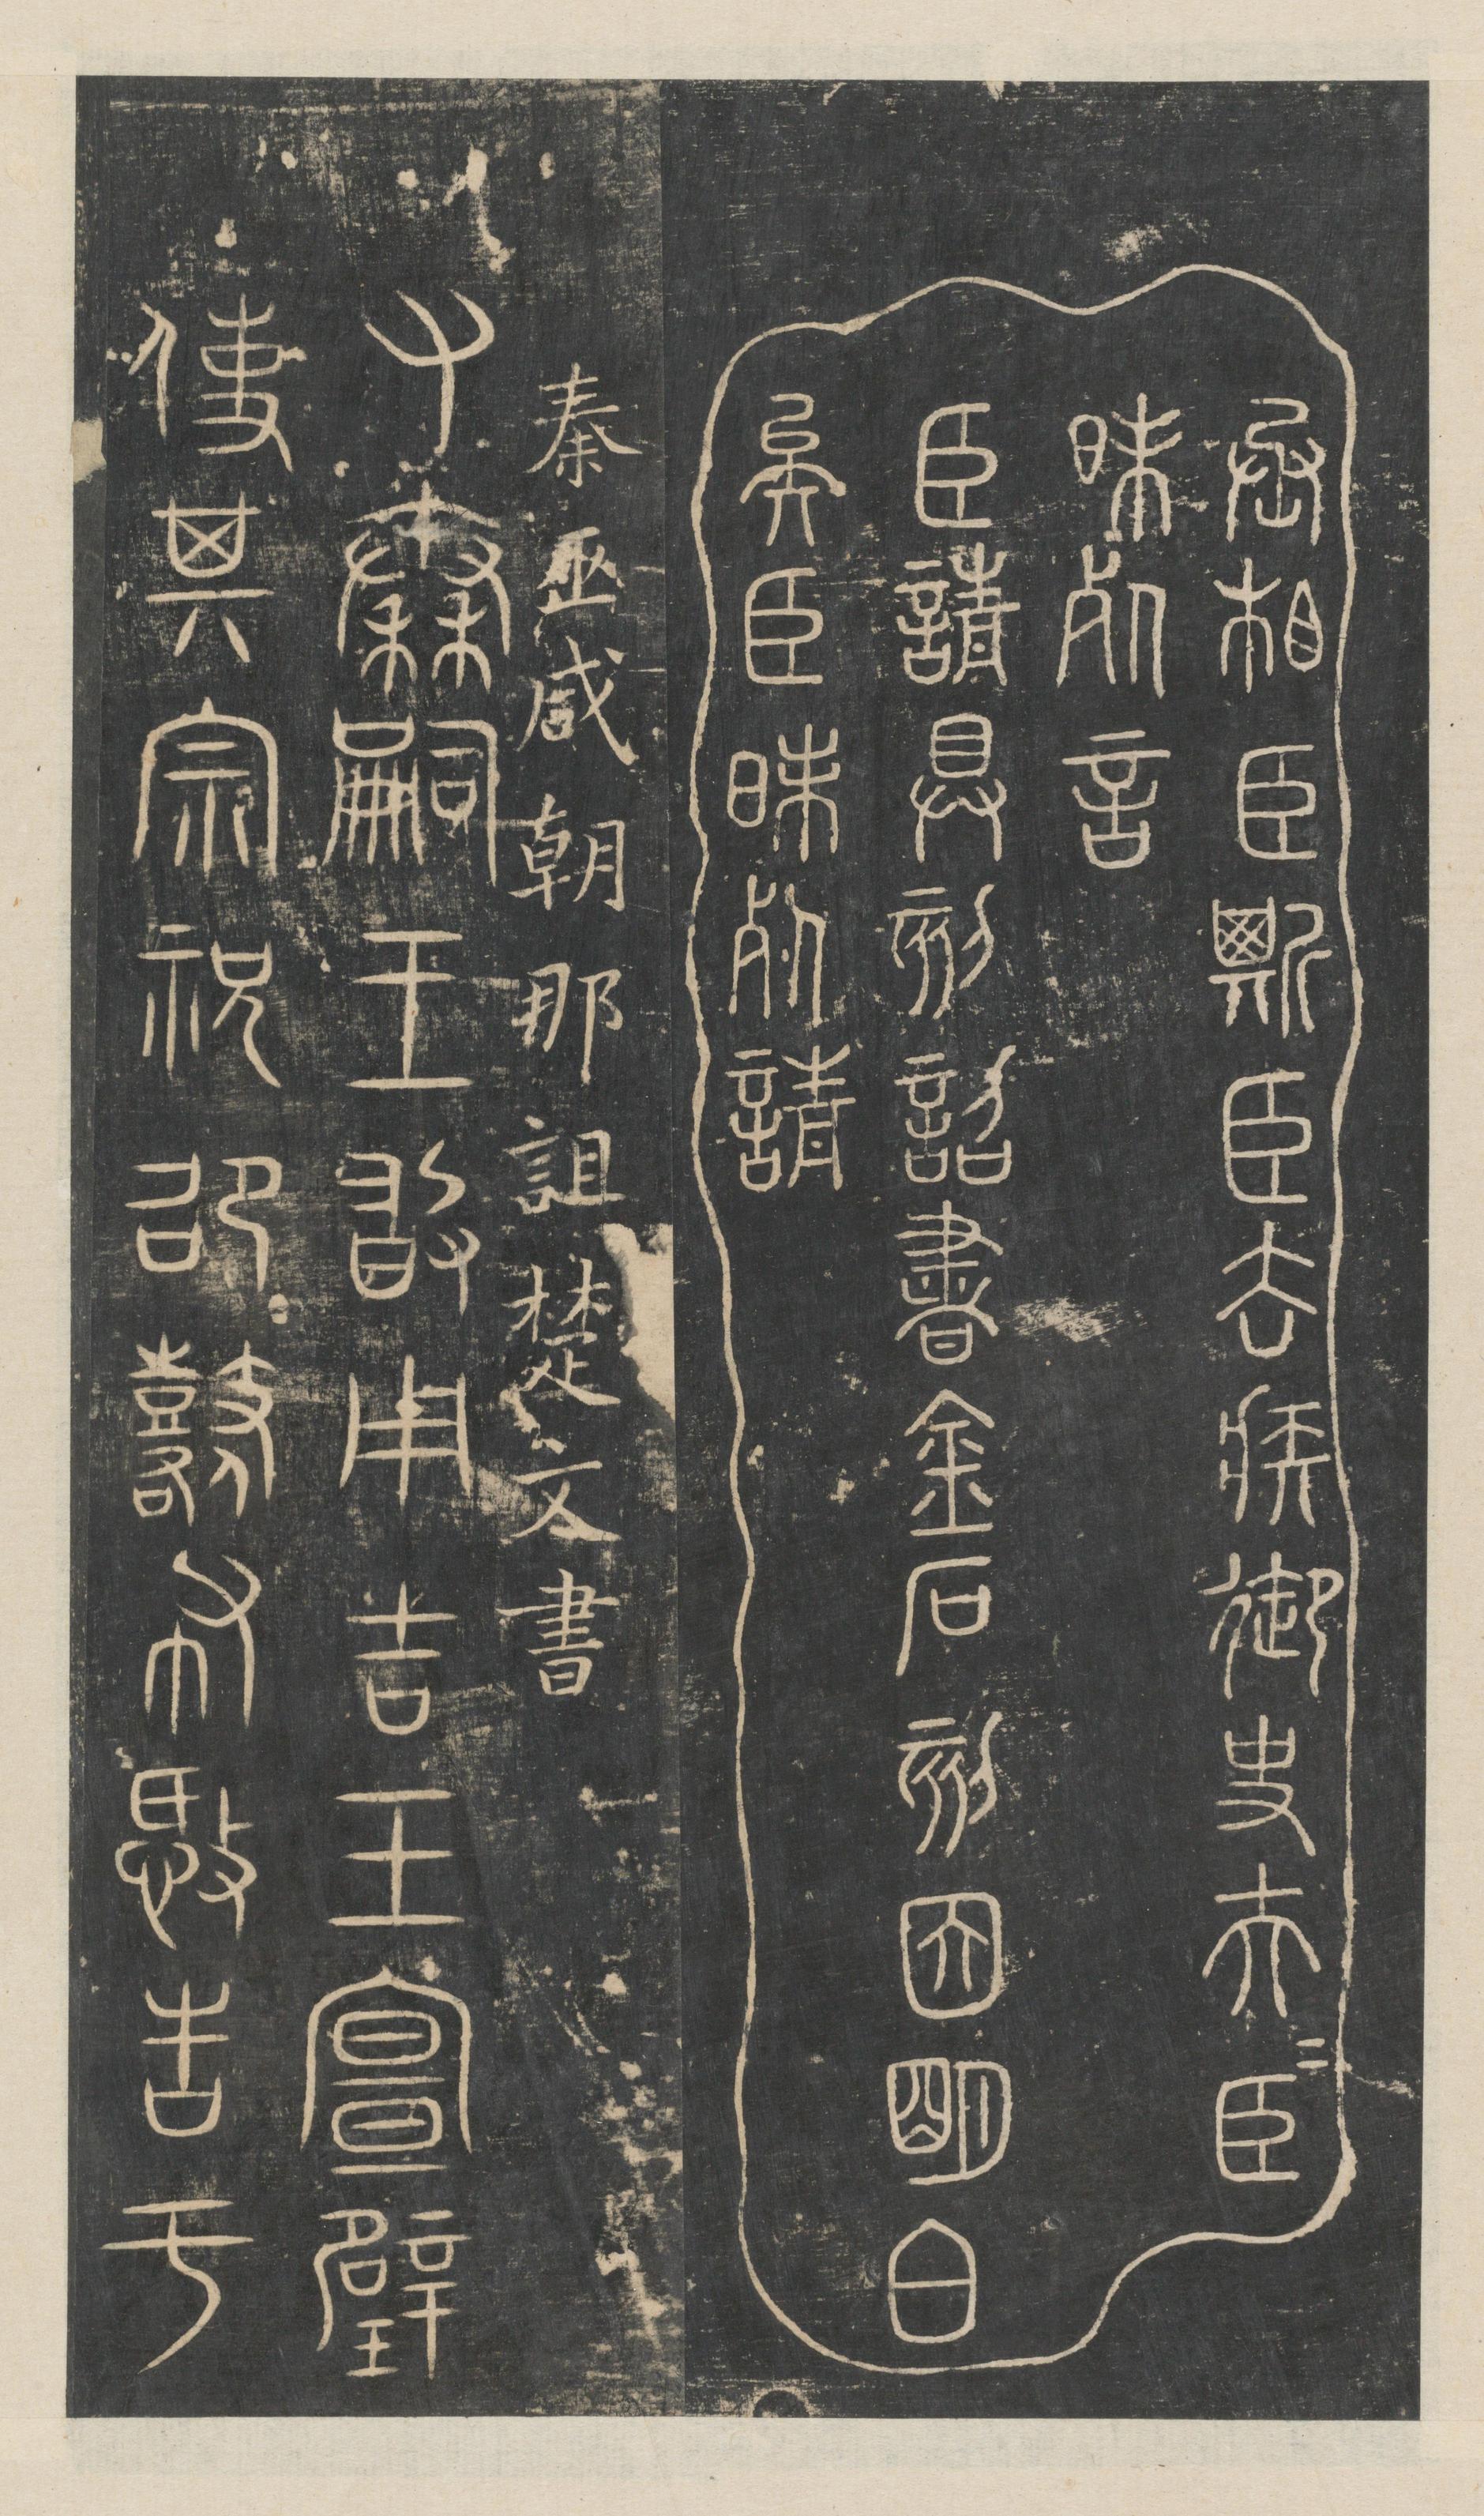 丞相臣斯臣去疾御史夫=臣
昧死言
臣請具刻詔書金石刻因明白
矣臣昧死請
秦巫咸朝那詛楚文書
又秦嗣王敢用吉玉宣璧
使其宗祝邵鼛布愍告于